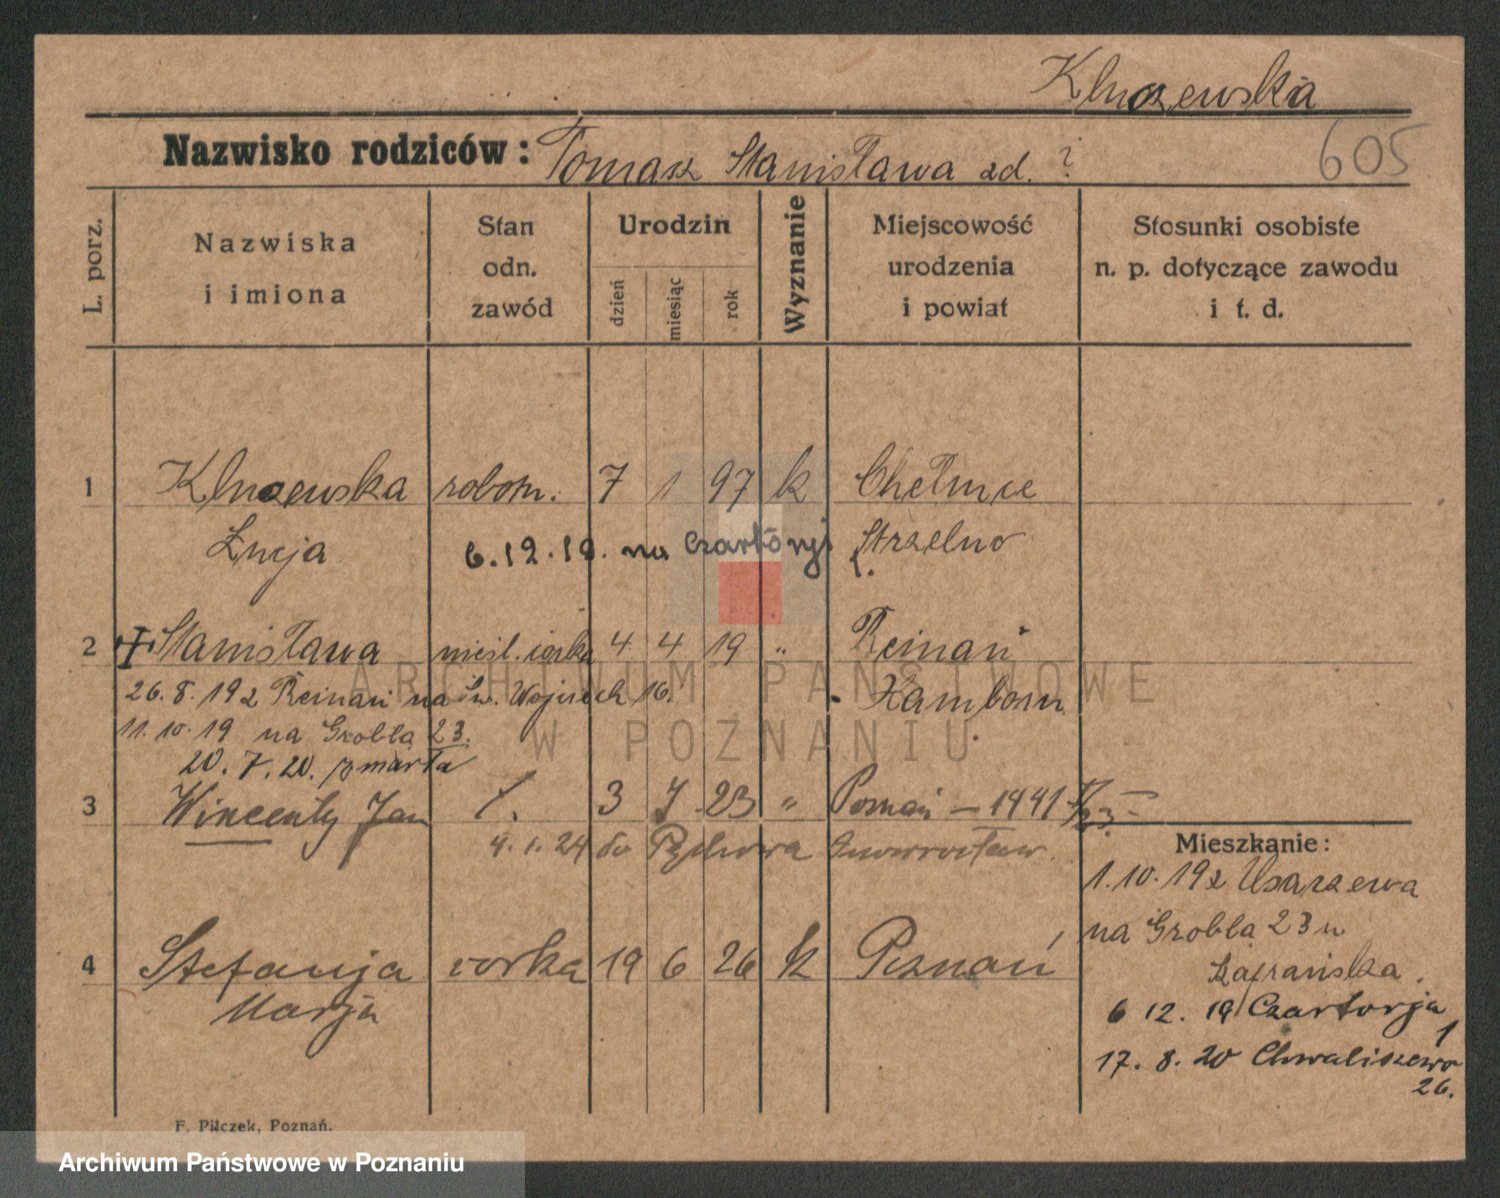 Kluczewska
605
Nazwisko rodziców: Tomasz Stanisława zd. ?
L. porz.
Nazwiska
i imiona
Stan
odn.
zawód
Urodzin
dzień
miesiąc
rok
Wyznanie
Miejscowość
urodzenia
i powiat
Stosunki osobiste
n. p. dotyczące zawodu
i t. d.
1 robotn. 7 1 97 k Chełmce
Łucja Strzelno
6.12.19. na Czartoryi 1.
2 Stanisława nieśl. córka 4 4 19 "
26.8.19 z na św. Wojciech 16.
11.10.19 na Grobla 23.
20.7.20. zmarła
3 Wincenty Jan 3 7 23 " Poznań — 1441
9.1.24 do Inowrocław.
4 Stefanja córka 19 6 26 k Poznań
Marja
Mieszkanie:
1.10.19 z
na Grobla 23 u
6 12. 19 Czartorja
1
17. 8. 20 Chwaliszewo
26.
F. Pilczek, Poznań.
ARCHIWUM PAŃSTWOWE
W POZNANIU
Archiwum Państwowe w Poznaniu